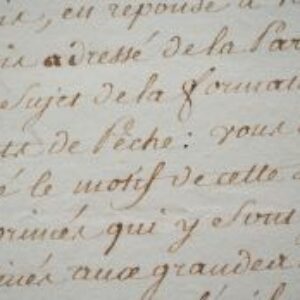 en reponse a
adressé de la Par
Sujet de la format
de Pêche: vous
é le motif de cette
primés qui y sont
inés aux grandes